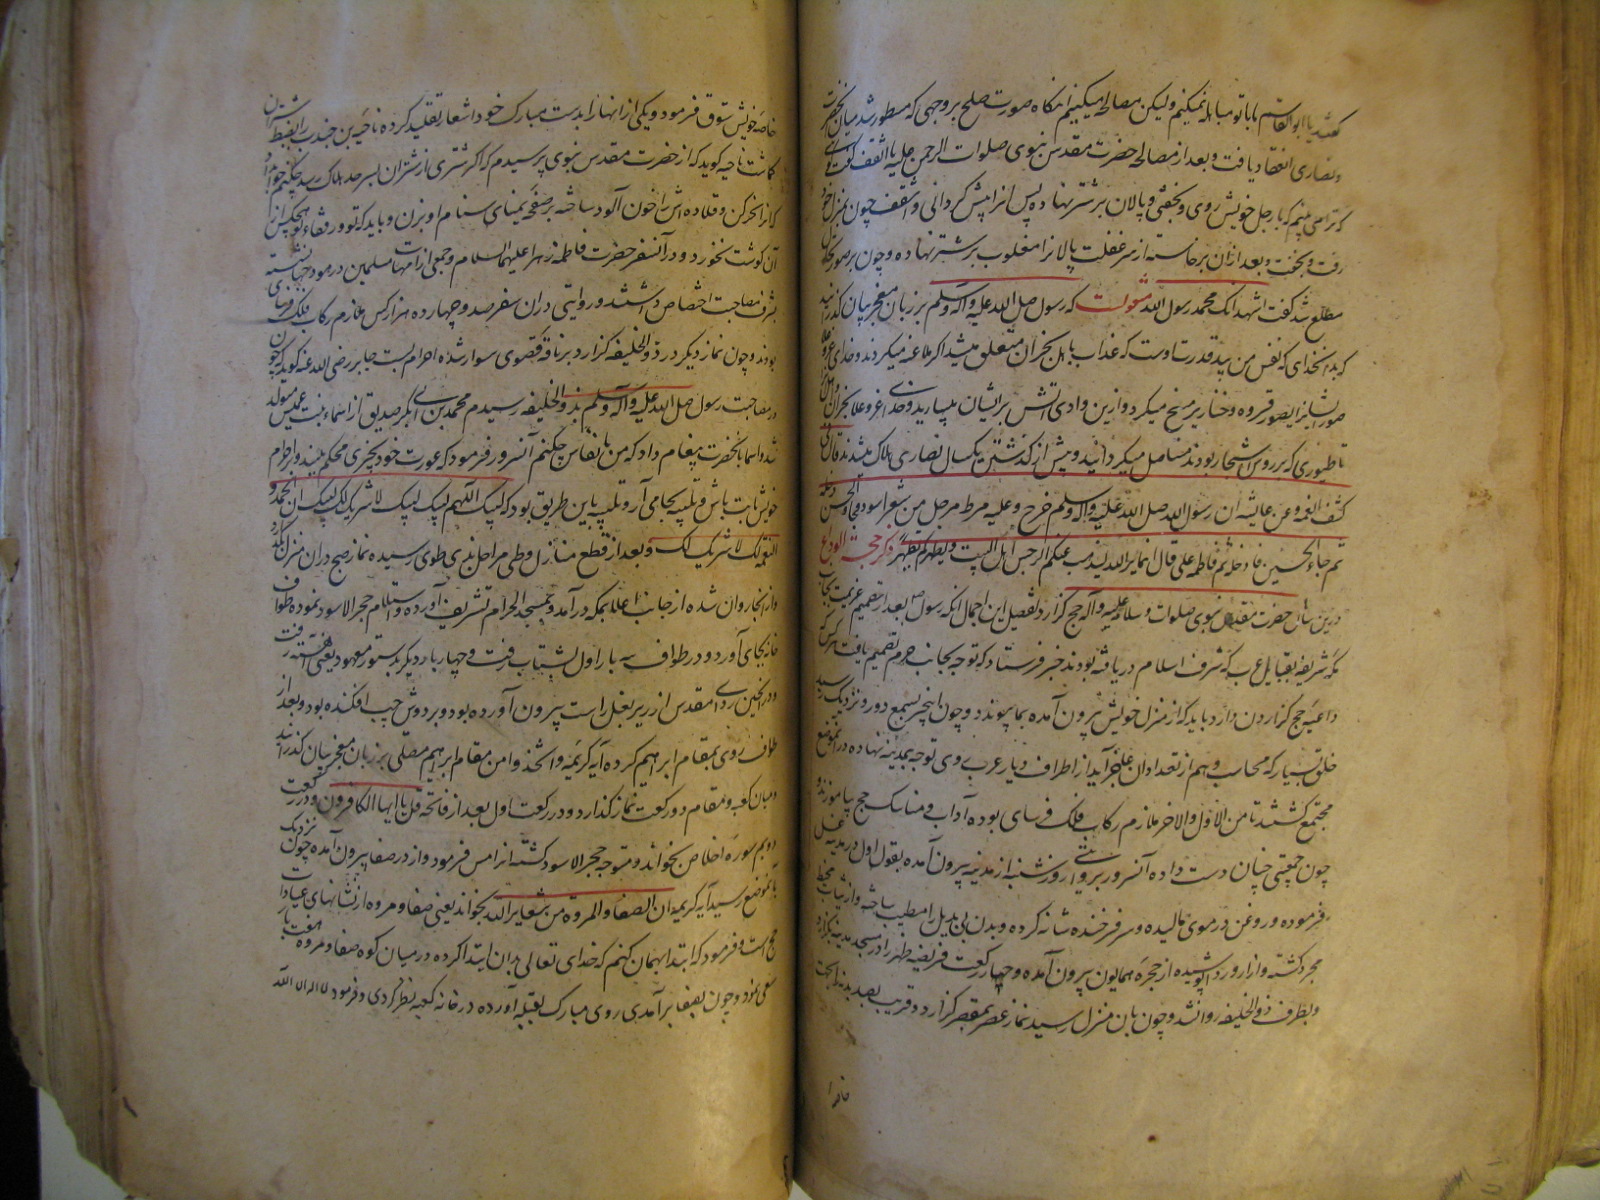 گفتند یا ابوالقاسم ما با تو مباهله نمیکنیم ولیکن مصالحه میکنیم آنگاه صورت صلح بر وجهی که مسطور شد میان آنحضرت
و نصاری انعقاد یافت و بعد از مصالحه حضرت مقدس نبوی صلوات الرحمن علیه با اسقف گفت گویا
که ترا می بینم که با رحل خویش روی و بخفتی و پالان بر شتر نهاده پس از پیش گردانی و اسقف چون بمنزل خود
رفت و بخفت و بعد از آن برخاسته از سر غفلت پالانرا مغلوب بر شتر نهاده و چون بر صورت حال
مطلع شد گفت اشهد انک محمد رسول الله منقولست که رسول صلی الله علیه و آله وسلم بر زبان معجز بیان گذرانید
که بدان خدای که نفس من بید قدرت اوست که عذاب باهل نجران متعلق میشد اگر ملاعنه میکردند و خدای عز و علا
صور ایشانرا بصور قرده و خنازیر مسخ میکرد و ازین وادی آتش بر ایشان میبارید و خدای عز و علا نجران و اهل آنرا
تا طیوری که بر روی اشجار بودند مستاصل میگردانید و پیش از گذشتن یکسال نصاری هلاک میشدند قال فی
کشف الغمه و عن عایشه ان رسول الله صلی الله علیه و آله وسلم خرج و علیه مرط مرجل من شعر اسود فجاء الحسن فادخله
ثم جاء الحسین فادخله ثم فاطمه ثم علی ثم قال انما یرید الله لیذهب عنکم الرجس اهل البیت و یطهرکم تطهیرا ذکر حجة الوداع
درین سال حضرت مقدس نبوی صلوات و سلامه علیه و آله حج گزارد تفصیل این اجمال آنکه رسول ص بعد از تصمیم عزیمت بجانب
مکه شریفه بقبایل عرب که شرف اسلام دریافته بودند خبر فرستاد که توجه بجانب حرم تصمیم یافت هر کس
داعیه حج گزاردن دارد باید که از منزل خویش بیرون آمده بما پیوندد و چون این خبر بسمع دور و نزدیک رسید
خلق بسیار که محاسب وهم از تعداد آن عاجز آید از اطراف دیار عرب روی توجه بمدینه نهاده در آنموضع
مجتمع گشتند تا من الاول والاخر ملازم رکاب فلک فرسای بوده آداب و مناسک حج بیاموزند
چون جمعیتی چنان دست داده آنسرور بروایتی روز شنبه از مدینه بیرون آمده بقول اول در مدینه غسل
فرموده و روغن در موی مالیده و سر فرخنده شانه کرده و بدن بی بدیل را مطیب ساخته و از ثیاب مخیط
مجرد گشته و ازار و ردا پوشیده از حجره همایون بیرون آمده و چهار رکعت فریضه ظهر را در مسجد مدینه بگزارد
و بطرف ذوالحلیفه روان شد و چون بآن منزل رسید نماز عصر بقصر گزارد و قریب بصد بدنه بجهت
خاصه
خاصه خویش سوق فرمود و یکی از آنها را بدست مبارک خود اشعار و تقلید کرده ناجیه بن جندب را بضبط شتران
گماشت ناجیه گوید که از حضرت مقدس نبوی پرسیدم که اگر شتری از شتران بسرحد هلاک رسد چکنم جواب داد
که آنرا نحر کن و قلاده اش را خون آلود ساخته بر صفحه یمنای سنام او بزن و باید که تو و رفقاء تو هیچکس از
آن گوشت نخورد و در آنسفر حضرت فاطمه زهرا علیهما السلام و جمعی از امهات مسلمین در هودجها نشسته
بشرف مصاحبت اختصاص داشتند و روایتی در آن سفر صد و چهارده هزار کس ملازم رکاب فلک فرسای
بودند و چون نماز دیگر در ذوالحلیفه گزارد بر ناقه قصوی سوار شده احرام بست جابر رضی الله عنه گوید که چون
در مصاحبت رسول صلی الله علیه و آله وسلم بذوالحلیفه رسیدم محمد بن ابی بکر صدیق از اسماء بنت عمیس متولد
شد و اسما بآنحضرت پیغام داد که من با نفاس چکنم آنسرور فرمود که عورت خود بچیزی محکم ببند و بر احرام
خویش ثابت باش و تلبیه بجای آر و تلبیه باین طریق بود که لبیک اللهم لبیک لبیک لا شریک لک لبیک ان الحمد و
النعمة لک لا شریک لک و بعد از قطع منازل و طی مراحل بذی طوی رسیده نماز صبح در آن منزل بگزارد
و از آنجا روان شده از جانب اعلا بمکه درآمد و بمسجد الحرام تشریف آورده و استلام حجر الاسود نموده طواف
خانه بجای آورد و در طواف سه بار اول بشتاب رفت و چهار بار دیگر بدستور معهود یعنی آهسته رفت
و در آنحین ردای مقدس از زیر بغل راست بیرون آورده بود و بر دوش چپ افکنده بود و بعد از
طواف روی بمقام ابراهیم کرده آیه کریمه و اتخذوا من مقام ابراهیم مصلی بر زبان معجز بیان گذرانید
و میان کعبه و مقام دو رکعت نماز گذارد و در رکعت اول بعد از فاتحه قل یا ایها الکافرون و در رکعت
دویم سوره اخلاص بخواند و متوجه حجر الاسود گشته آنرا مس فرمود و از در صفا بیرون آمده چون نزدیک
بآنموضع رسید آیه کریمه ان الصفا والمروة من شعایر الله بخواند یعنی صفا و مروه از نشانهای عبادات
حج است و فرمود که ابتدا بهمان کنم که خدای تعالی بدان ابتدا کرده و در میان کوه صفا و مروه هفت بار
سعی نمود و چون بصفا برآمدی روی مبارک بقبله آورده در خانه کعبه نظر کردی و فرمود لا اله الا الله